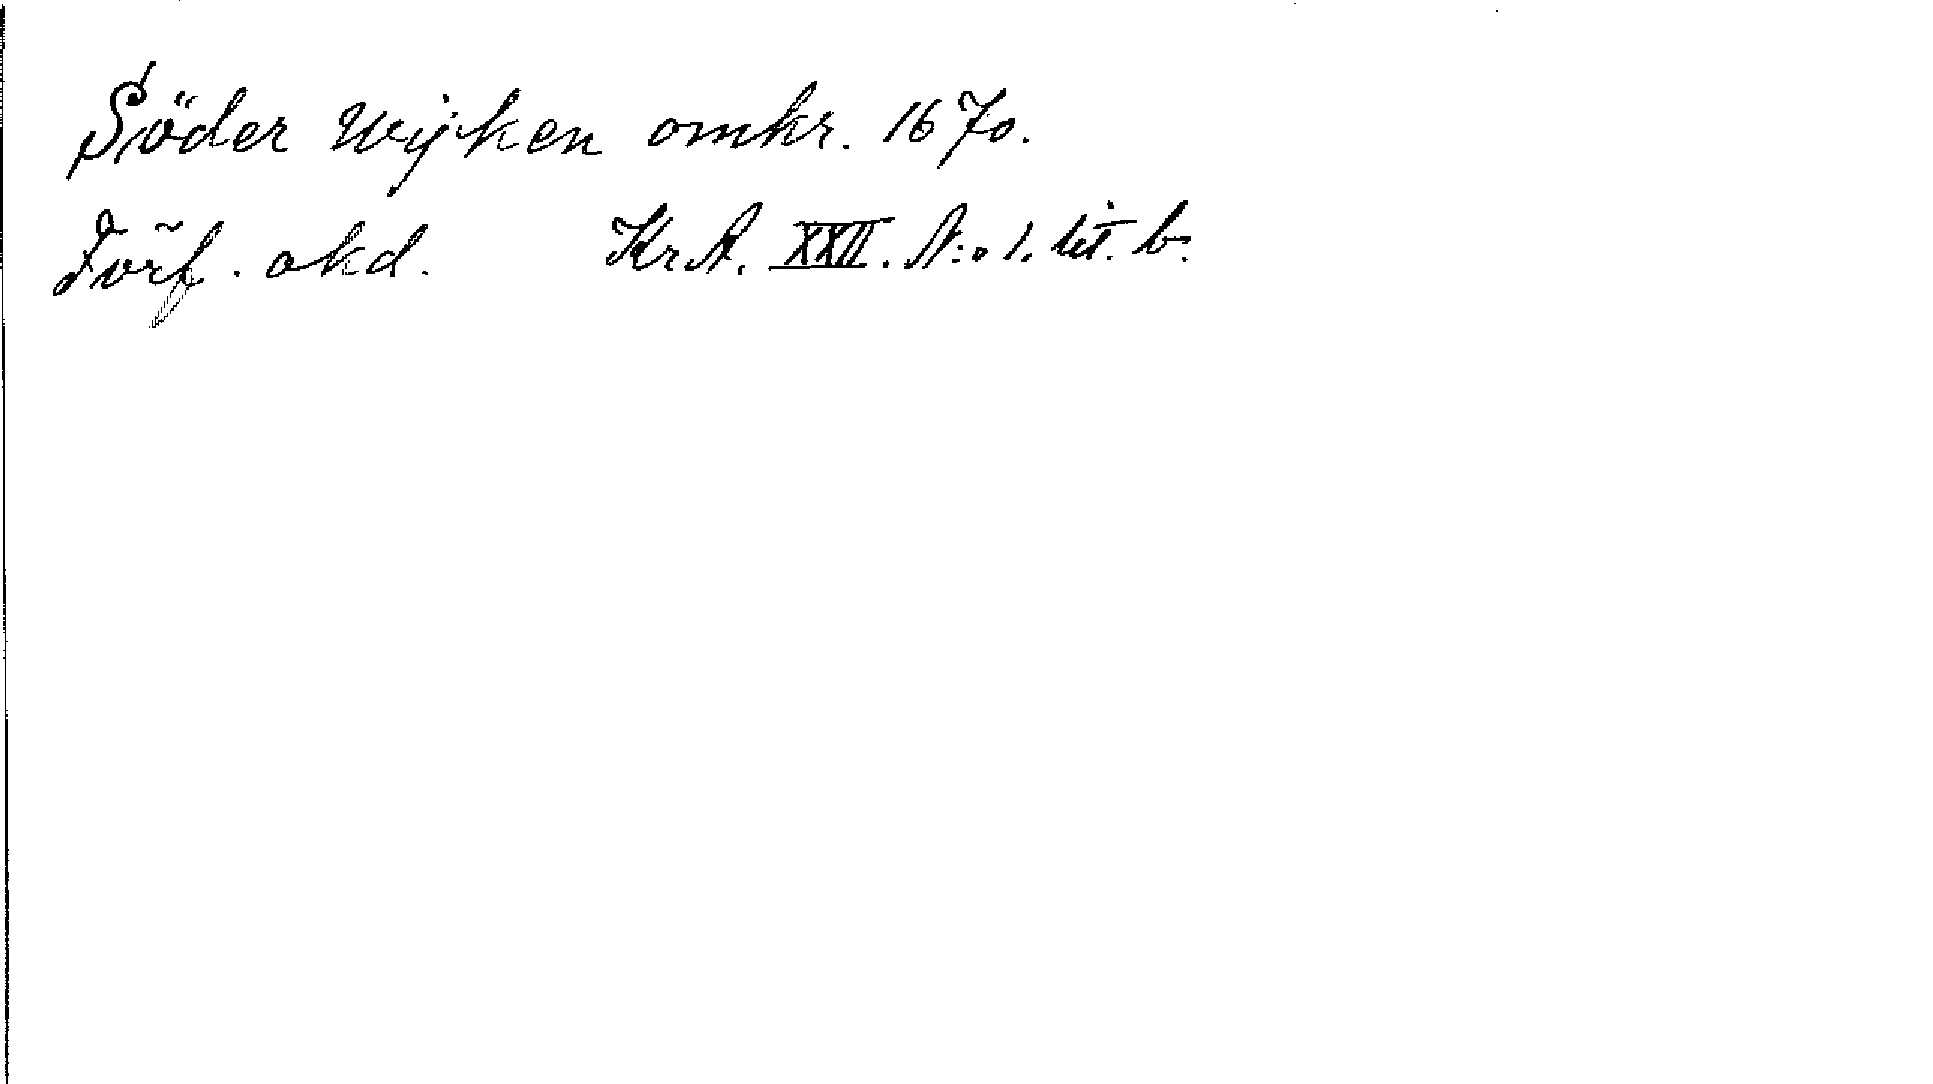 Söder Wijken omkr. 1670.
Förf. okd. KrA. XXII. N:o 1. lit. b.